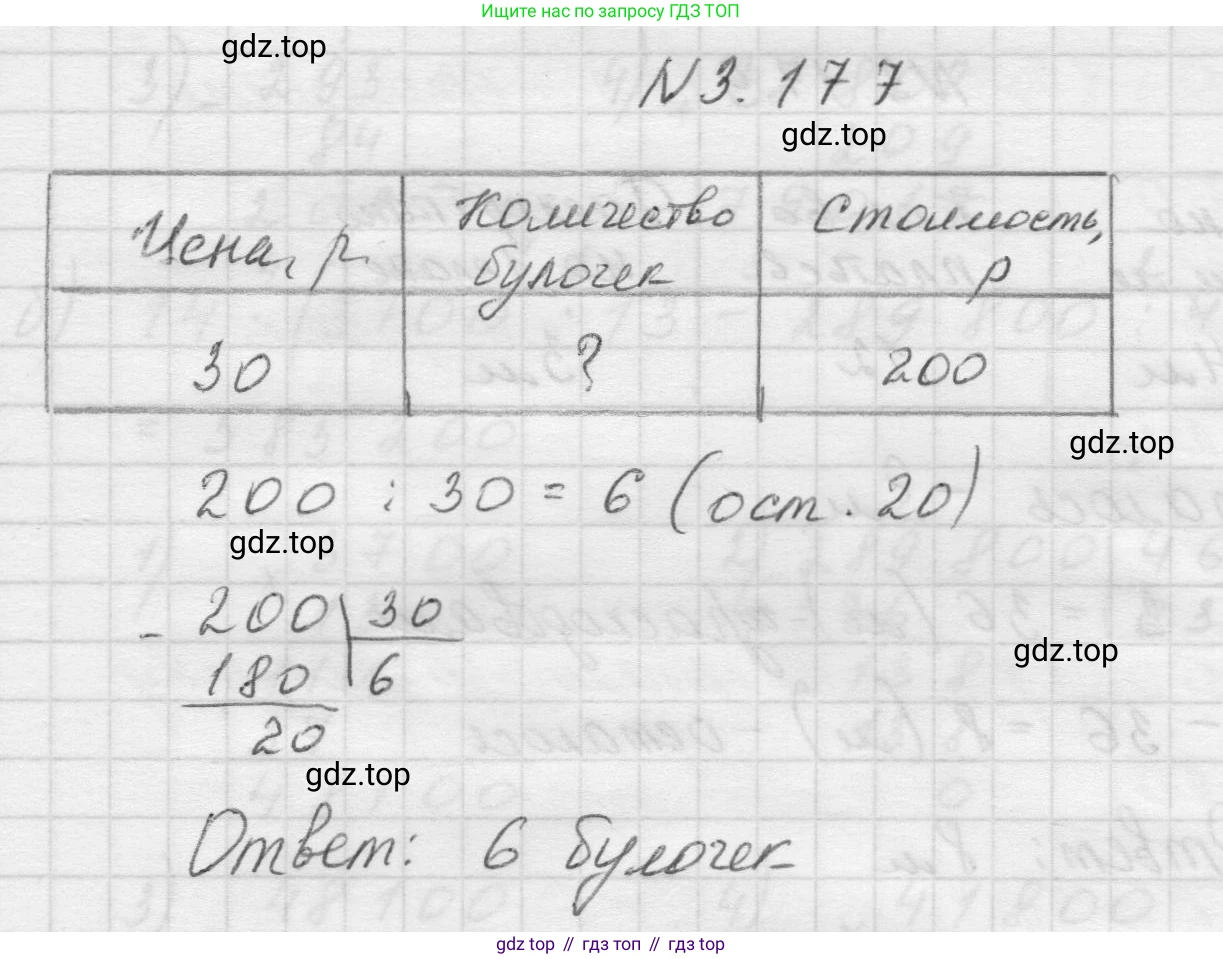 Ищите нас по запросу ГДЗ ТОП
gdz.top
№3.177
gdz.top
Цена, р. Количество булочек Стоимость, р
30 ? 200
gdz.top
200 : 30 = 6 (ост. 20)
gdz.top
- 200 30
180 6
gdz.top
20
gdz.top
Ответ: 6 булочек
gdz top // гдз топ // гдз top